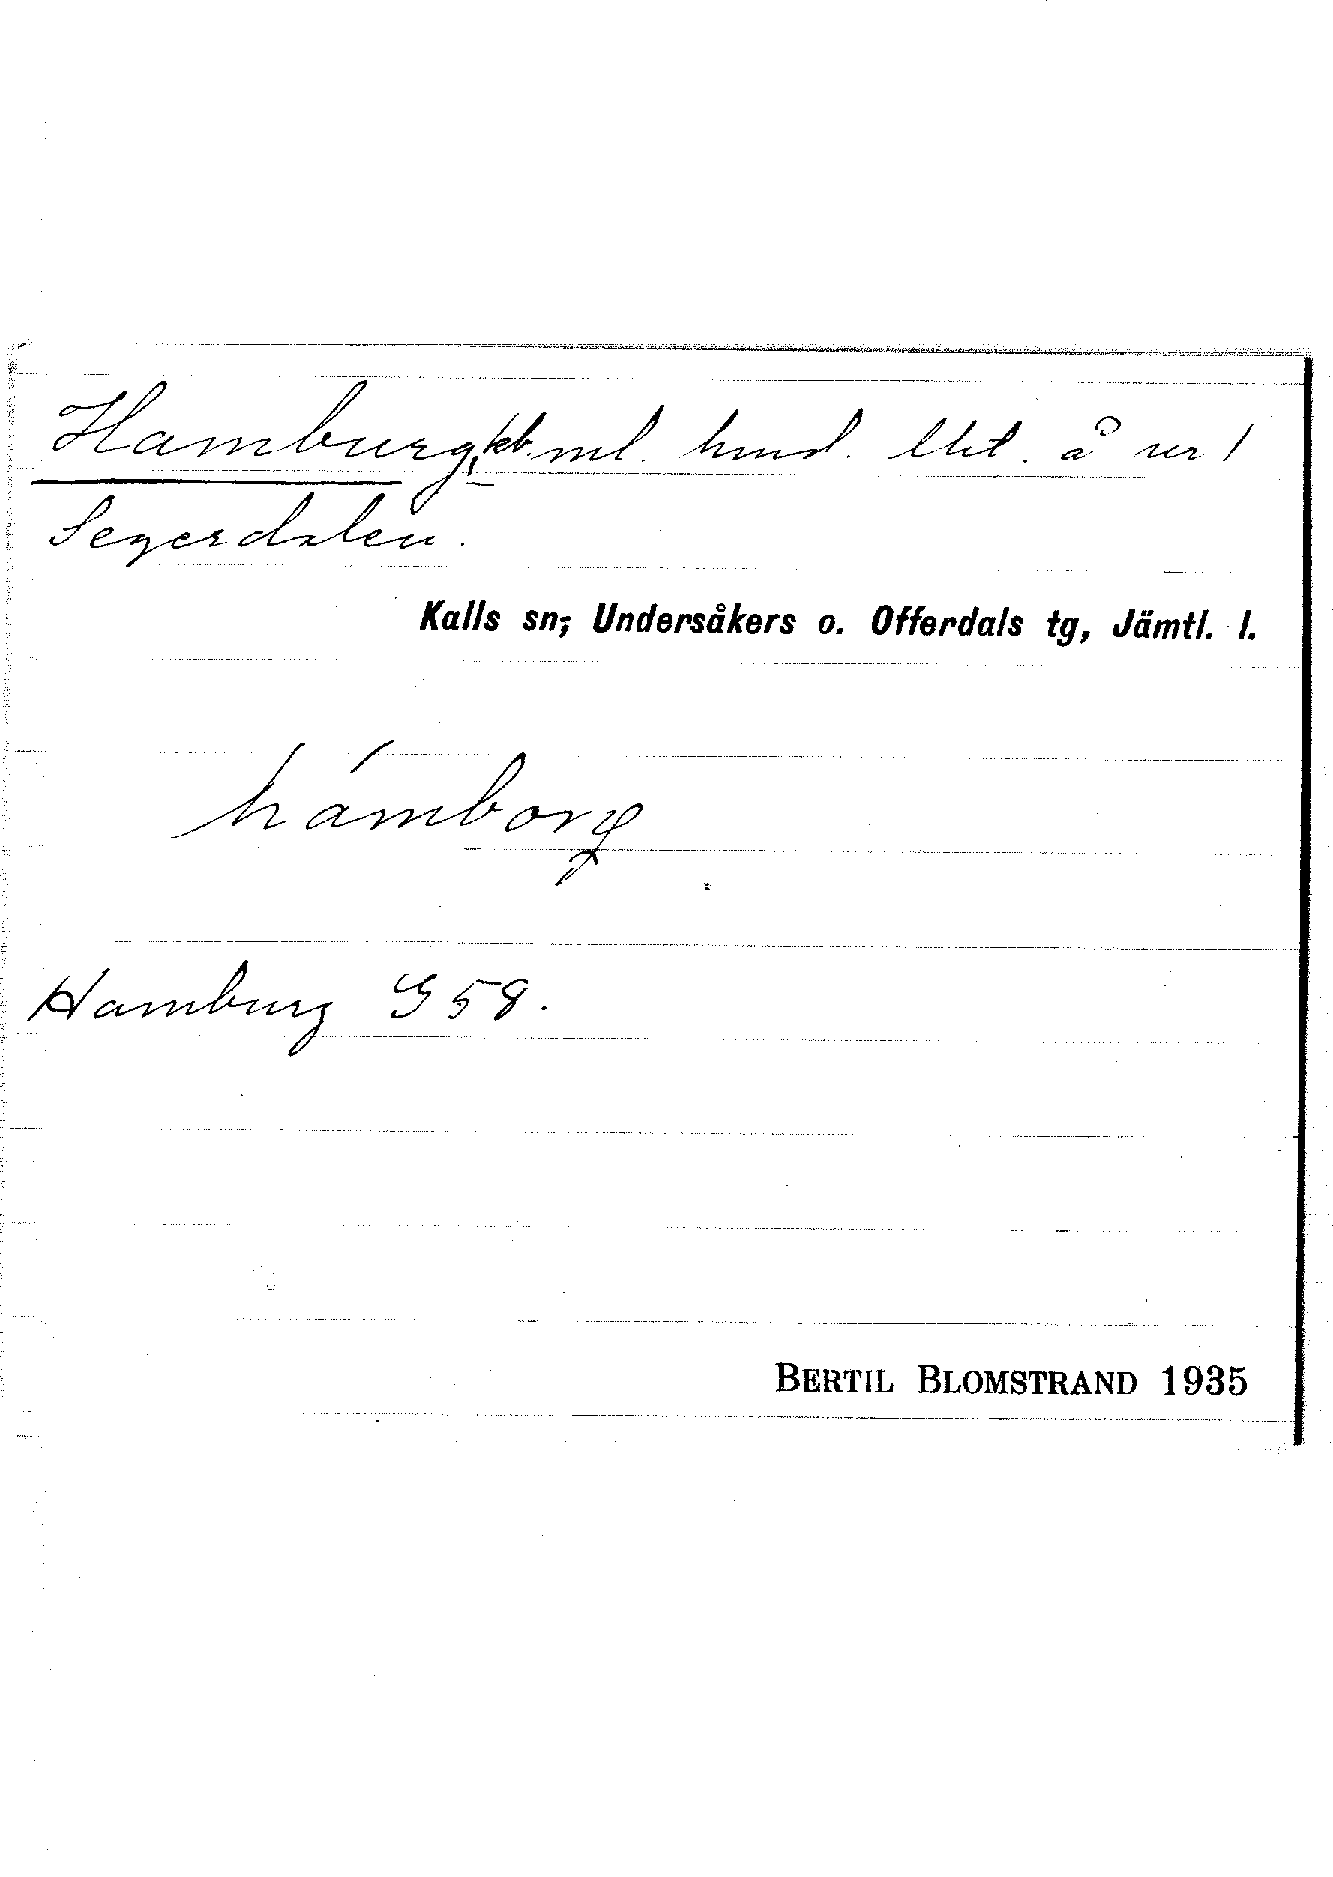 Hamburg, kb. ml. hmd. Utd. å nr 1
Segerdalen.
Kalls sn; Undersåkers o. Offerdals tg, Jämtl. l.
Hamburg G58.
BERTIL BLOMSTRAND 1935